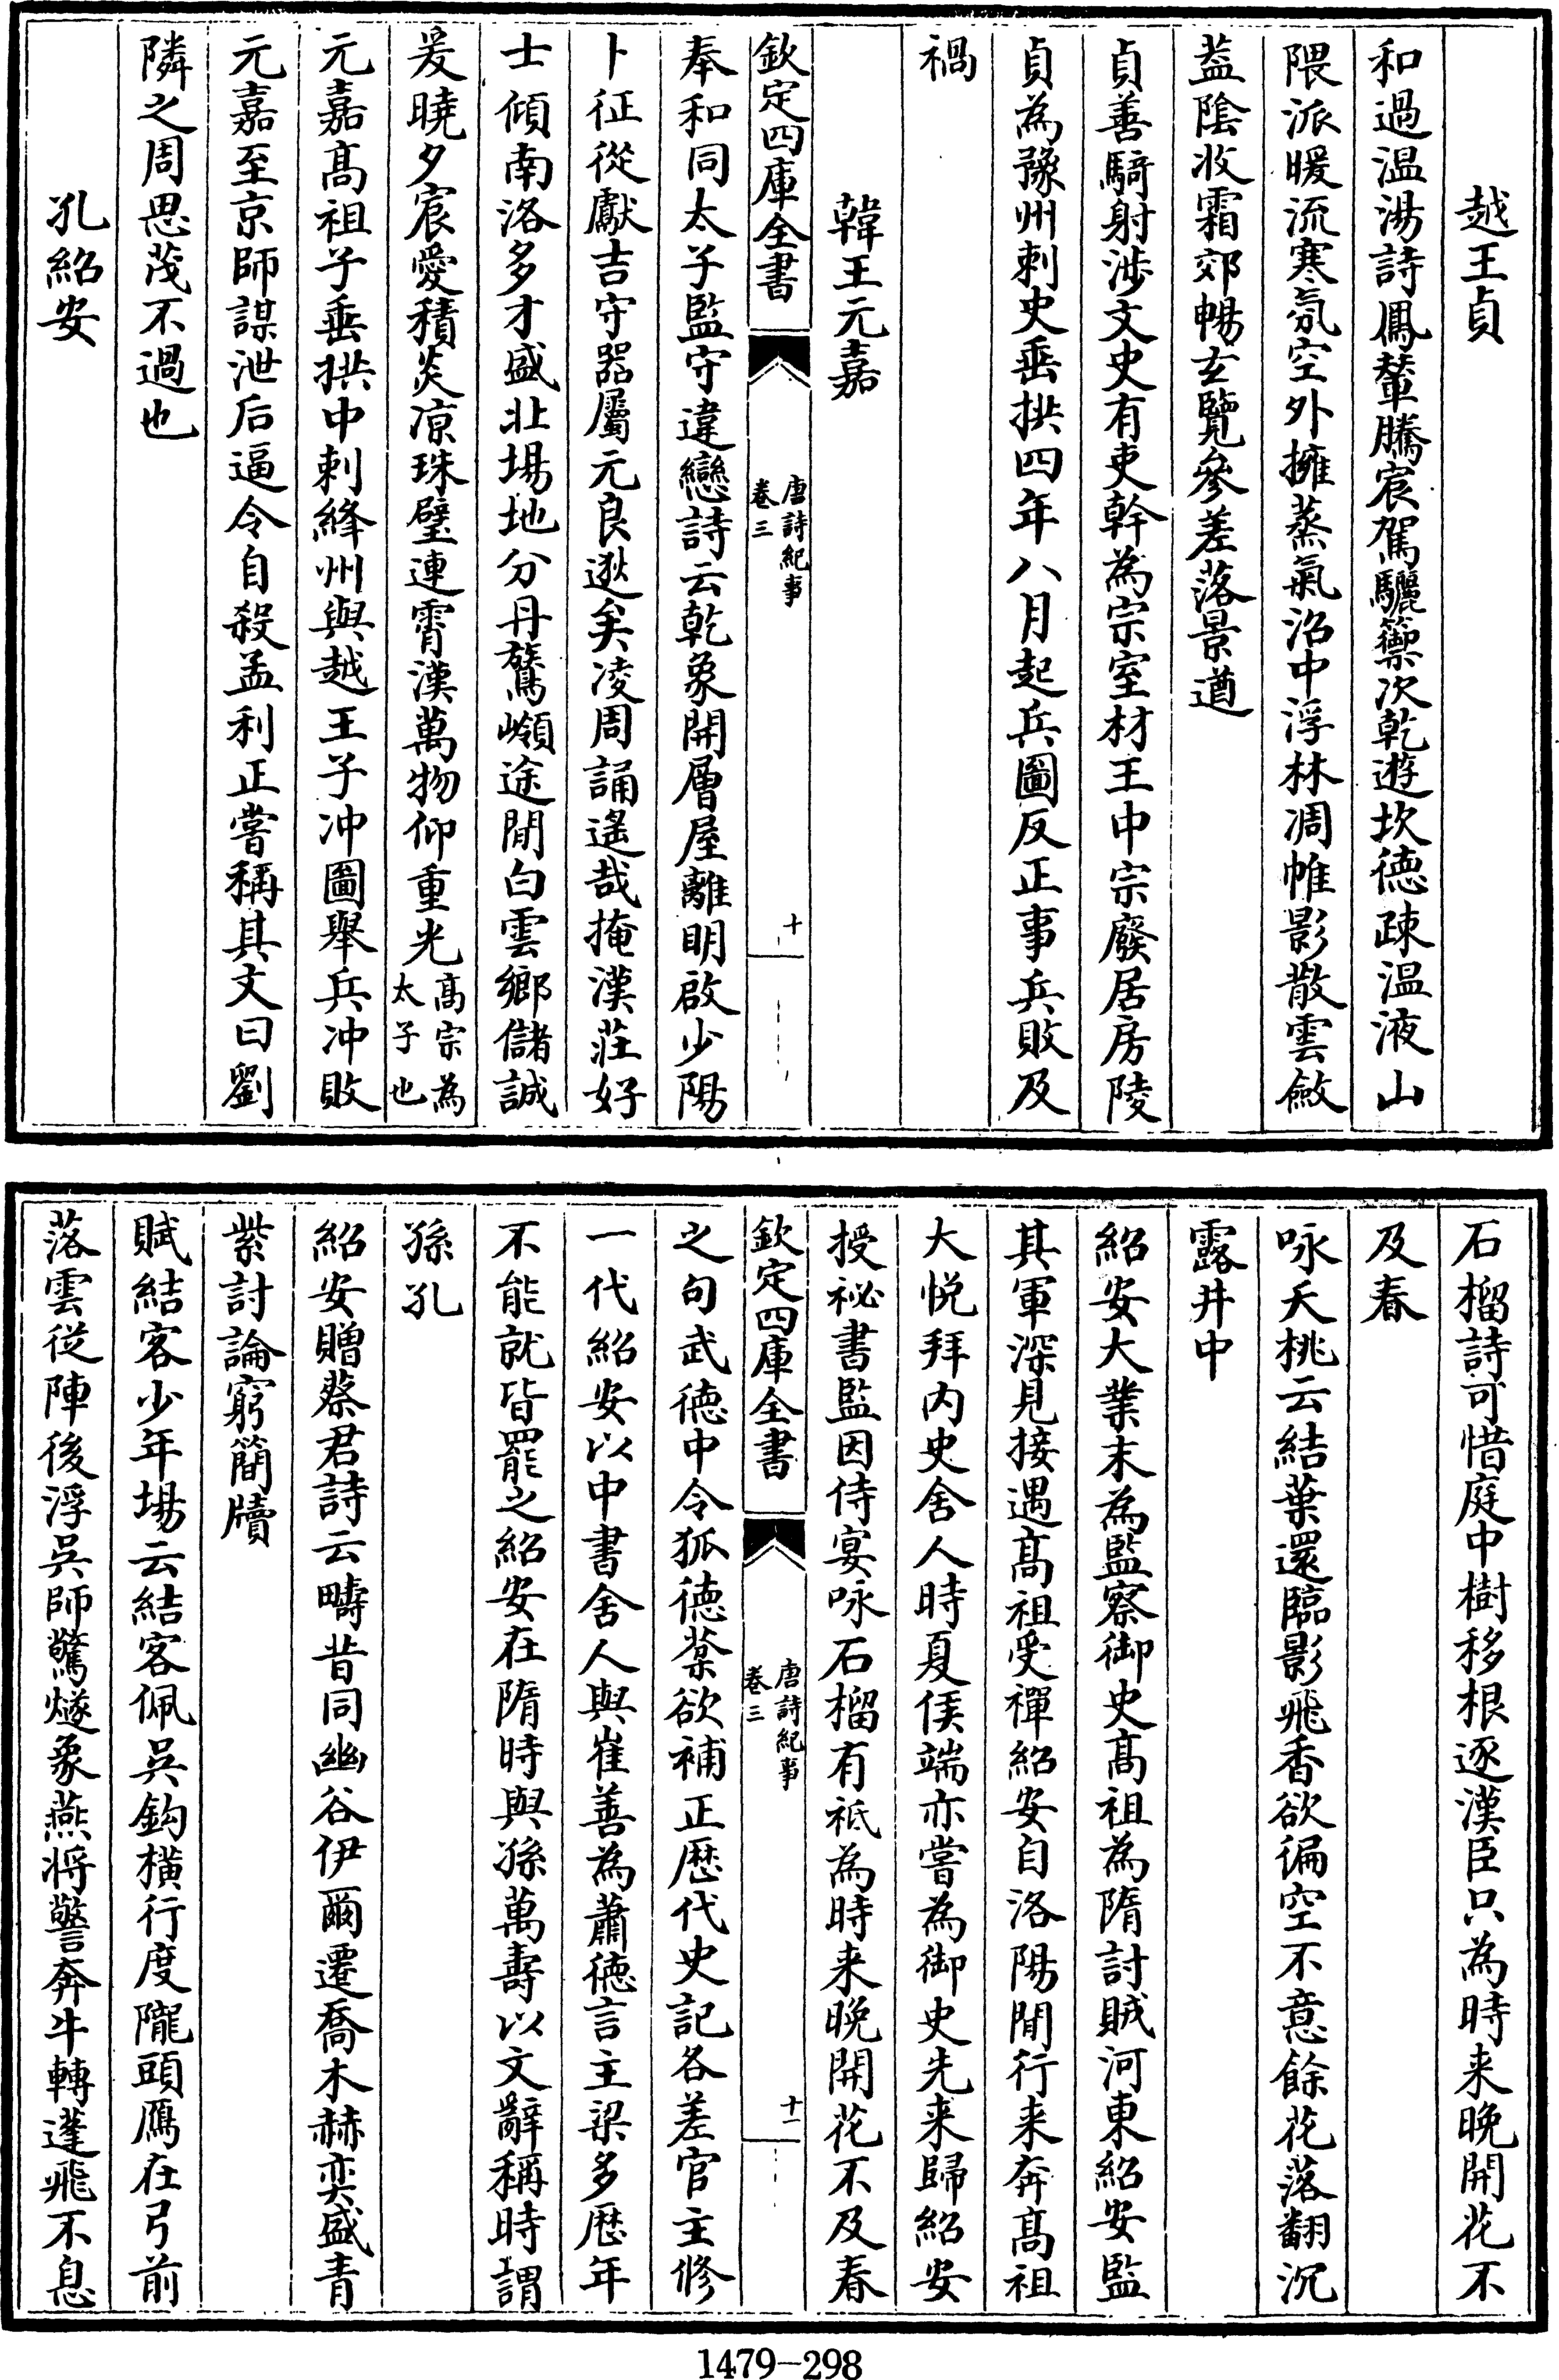 越王貞
和過温湯詩鳳輦騰宸駕驪籞次乾遊坎徳疎温液山
隈派暖流寒氛空外擁蒸氣沼中浮林凋帷影散雲斂
葢陰收霜郊暢玄覽參差落景遒
貞善騎射涉文史有吏幹為宗室材王中宗廢居房陵
貞為豫州刺史垂拱四年八月起兵圖反正事兵敗及
禍
韓王元嘉
欽定四庫全書
唐詩紀事
卷三
十
奉和同太子監守違戀詩云乾象開層屋離明啟少陽
卜征從獻吉守器屬元良逖矣凌周誦遙哉掩漢莊好
士傾南洛多才盛北場地分丹鷟嶺途間白雲鄉儲誠
爰曉夕宸愛積炎凉珠璧連霄漢萬物仰重光高宗為太子也
元嘉髙祖子垂拱中刺絳州與越王子沖圖舉兵沖敗
元嘉至京師謀泄后逼令自殺孟利正嘗稱其文曰劉
隣之周思茂不過也
孔紹安
石榴詩可惜庭中樹移根逐漢臣只為時来晚開花不
及春
咏夭桃云結葉還臨影飛香欲徧空不意餘花落翻沉
露井中
紹安大業末為監察御史髙祖為隋討賊河東紹安監
其軍深見接遇髙祖受禪紹安自洛陽間行来奔髙祖
大悦拜内史舍人時夏侯端亦嘗為御史先来歸紹安
授祕書監因侍宴咏石榴有祇為時来晚開花不及春
欽定四庫全書
唐詩紀事
卷三
十一
之句武徳中令狐徳棻欲補正歴代史記各差官主修
一代紹安以中書舍人與崔善為蕭徳言主梁多歴年
不能就皆罷之紹安在隋時與孫萬壽以文辭稱時謂
孫孔
紹安贈蔡君詩云疇昔同幽谷伊爾遷喬木赫奕盛青
紫討論窮簡牘
賦結客少年場云結客佩吳鈎橫行度隴頭鴈在弓前
落雲從陣後浮吳師驚燧象燕将警奔牛轉蓬飛不息
1479-298